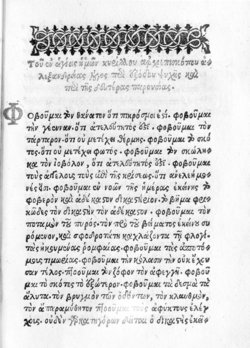 Τοῦ ἐν ἁγίοις ἡμῶν κυρίλλου ἀρχιεπισκόπου ἀ-
λεξανδρείας λόγος περὶ ἐξόδου ψυχῆς καὶ
περὶ τῆς δευτέρας παρουσίας.
ΦΟΒΟΥΜΑΙ τὸν θάνατον ὅτι πικρός μοι ἐστί. φοβοῦμαι
τὴν γέενναν. ὅτι ἀτελεύτητός ἐστι. φοβοῦμαι τὸν
τάρταρον. ὅτι οὐ μετέχει θέρμης. φοβοῦμαι τὸ σκό
τος. ὅτι οὐ μετέχει φωτός. φοβοῦμαι τὸν σκώλη
κα τὸν ἰοβόλον, ὅτι ἀτελεύτητός ἐστι. φοβοῦμαι τοὺς
ἀγγέλους τοὺς ἐπὶ τῆς κρίσεως, ὅτι ἀνελεήμο
νές εἰσι. φοβοῦμαι ἐννοῶν τῆς ἡμέρας ἐκείνης τὸ
φοβερὸν καὶ ἀδέκαστον δικαστήριον. τὸ βῆμα τὸ φρι
κῶδες τὸν δικαστὴν τὸν ἀδέκαστον. φοβοῦμαι τὸν
ποταμὸν τοῦ πυρὸς. τὸν πρὸ τοῦ βήματος ἐκείνου συ
ρόμενον, καὶ σφοδροτάτῃ καχλάζοντα τῇ φλογὶ.
τὰς ἠκονημένας ῥομφαίας. φοβοῦμαι τὰς ἀποτό
μους τιμωρίας. φοβοῦμαι τὴν κόλασιν τὴν οὐκ ἔχου
σαν τέλος. φοβοῦμαι τὸν ζόφον τὸν ἀφεγγῆ. φοβοῦ
μαι τὸ σκότος τὸ ἐξώτερον. φοβοῦμαι τὰ δεσμὰ τὰ
ἄλυτα. τὸν βρυγμὸν τῶν ὀδόντων, τὸν κλαυθμὸν,
τὸν ἀπαραμύθητον. φοβοῦμαι τοὺς ἀφύκτους ἐλέγ
χους. οὐδὲν γὰρ κατηγόρων δεῖται ὁ δικαστὴς ἐκεῖνο